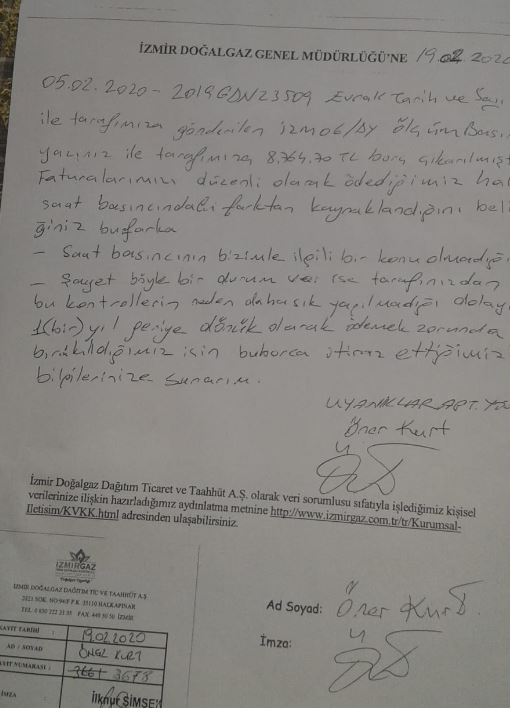 İZMİR DOĞALGAZ GENEL MÜDÜRLÜĞÜ'NE 19.02.2020
05.02.2020 - 2019GDN23509 Evrak Tarih ve Sayı
ile tarafımıza gönderilen Ölçüm Bası
yazınız ile tarafımıza 8,764,70 TL borç çıkarılmışt
Faturalarımızı düzenli olarak ödediğimiz hal
saat basıncındaki farktan kaynaklandığını beli
ğiniz bu farka
- Saat basıncının bizimle ilgili bir konu olmadığı
- Şayet böyle bir durum var ise tarafınızdan
bu kontrollerin neden daha sık yapılmadığı dolayı
1(bir) yıl geriye dönük olarak ödemek zorunda
bırakıldığımız için bu borca itiraz ettiğimiz
bilgilerinize sunarım.
UYANIKLAR APT. YÖ
Öner Kurt
İzmir Doğalgaz Dağıtım Ticaret ve Taahhüt A.Ş. olarak veri sorumlusu sıfatıyla işlediğimiz kişisel
verilerinize ilişkin hazırladığımız aydınlatma metnine http://www.izmirgaz.com.tr/tr/Kurumsal-
Iletisim/KVKK.html adresinden ulaşabilirsiniz.
İZMİRGAZ
İZMİR DOĞALGAZ DAĞITIM TİC VE TAAHHÜT A.Ş
2821 SOK. NO:94/F P.K. 35110 HALKAPINAR
İZMİR
KAYIT TARİHİ : 19.02.2020
AD / SOYAD : ÖNER KURT
KAYIT NUMARASI : 3678
İMZA İlknur ŞİMŞEK
Ad Soyad: Öner Kurt
İmza: